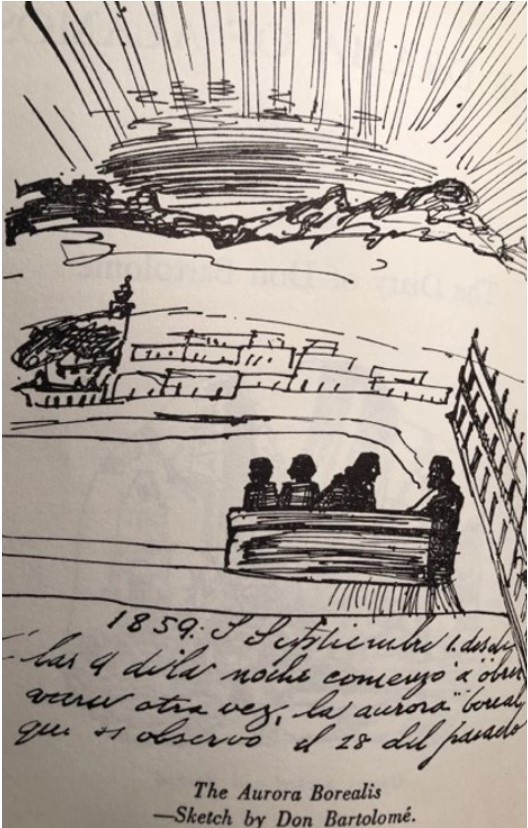 1859. S Septiembre 1. desde
las 9 de la noche comenzo a obser
varse otra vez, la aurora boreal
que se observó el 28 del pasado
The Aurora Borealis
—Sketch by Don Bartolomé.